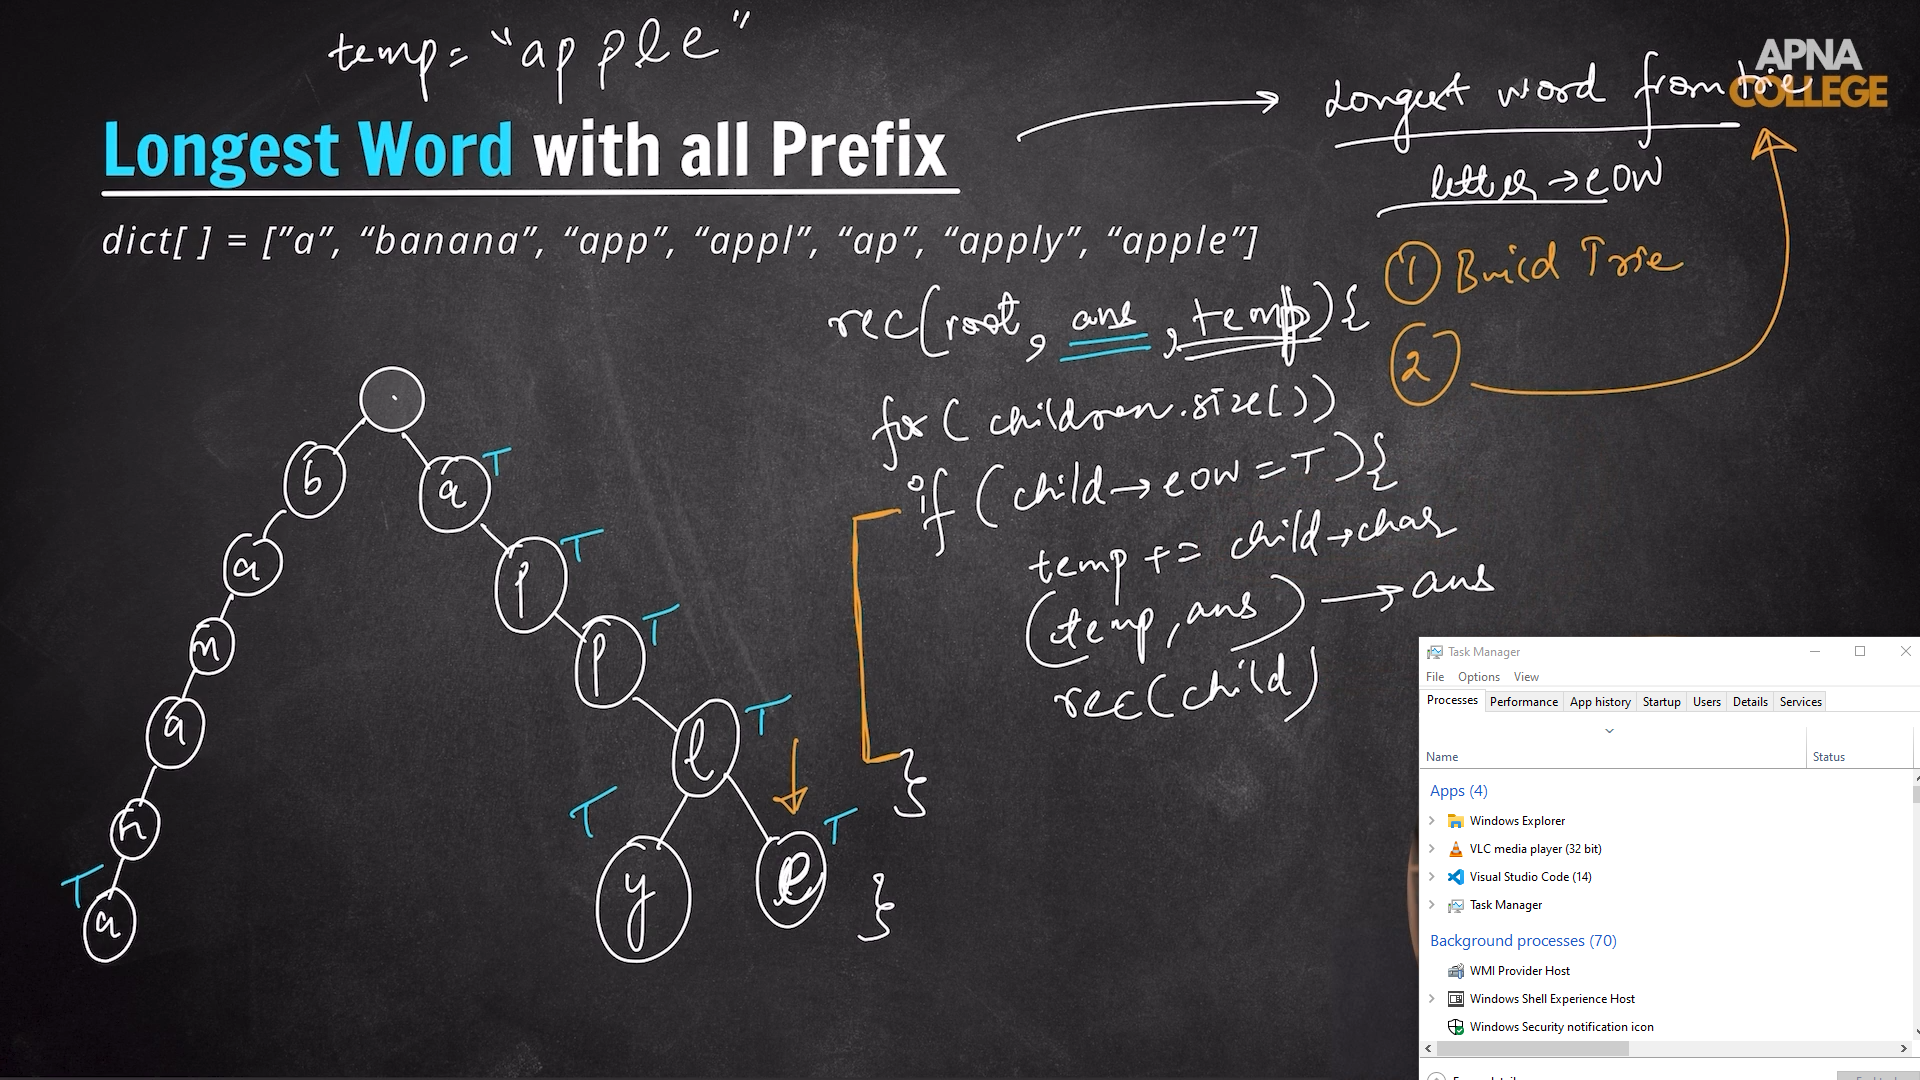 temp = "apple"
APNA
COLLEGE
Longest word from trie
Longest Word with all Prefix
letter → eow
dict[ ] = ["a", "banana", "app", "appl", "ap", "apply", "apple"]
① Build Trie
②
rec(root, ans, temp){
for ( children.size())
if (child→eow = T){
temp += child→char
(temp, ans) → ans
rec(child)
}
}
b
a T
a
p T
n
p T
a
l T
n
T y
e T
T a
Task Manager
File Options View
Processes Performance App history Startup Users Details Services
Name Status
Apps (4)
Windows Explorer
VLC media player (32 bit)
Visual Studio Code (14)
Task Manager
Background processes (70)
WMI Provider Host
Windows Shell Experience Host
Windows Security notification icon